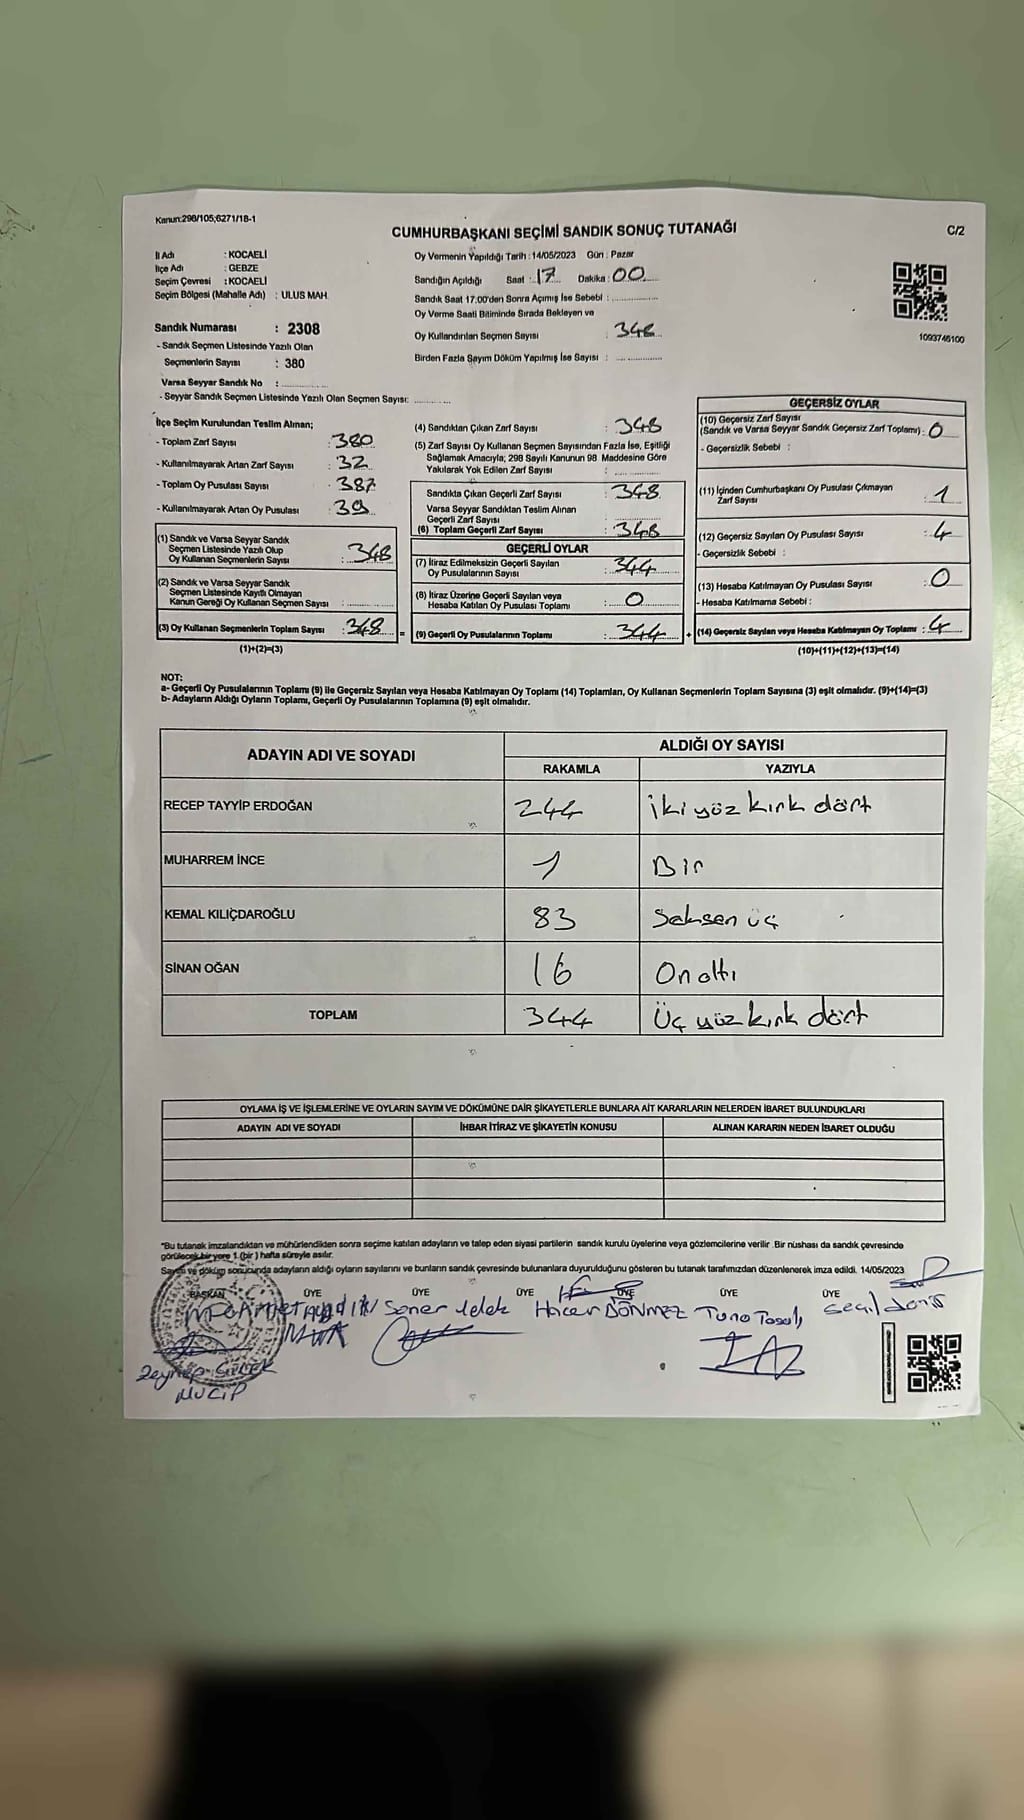 Kanun:298/105;6271/18-1
CUMHURBAŞKANI SEÇİMİ SANDIK SONUÇ TUTANAĞI
C/2
İl Adı : KOCAELİ
İlçe Adı : GEBZE
Seçim Çevresi : KOCAELİ
Seçim Bölgesi (Mahalle Adı) : ULUS MAH.
Sandık Numarası : 2308
- Sandık Seçmen Listesinde Yazılı Olan
Seçmenlerin Sayısı : 380
Varsa Seyyar Sandık No : ............
- Seyyar Sandık Seçmen Listesinde Yazılı Olan Seçmen Sayısı: ............
Oy Vermenin Yapıldığı Tarih : 14/05/2023 Gün : Pazar
Sandığın Açıldığı Saat : 17 Dakika : 00
Sandık Saat 17:00'den Sonra Açımış İse Sebebi : ............
Oy Verme Saati Bitiminde Sırada Bekleyen ve
Oy Kullandırılan Seçmen Sayısı : 348
Birden Fazla Sayım Döküm Yapılmış İse Sayısı : ............
1093746100
İlçe Seçim Kurulundan Teslim Alınan;
- Toplam Zarf Sayısı : 380
- Kullanılmayarak Artan Zarf Sayısı : 32
- Toplam Oy Pusulası Sayısı : 387
- Kullanılmayarak Artan Oy Pusulası : 39
(1) Sandık ve Varsa Seyyar Sandık
Seçmen Listesinde Yazılı Olup
Oy Kullanan Seçmenlerin Sayısı : 348
(2) Sandık ve Varsa Seyyar Sandık
Seçmen Listesinde Kayıtlı Olmayan
Kanun Gereği Oy Kullanan Seçmen Sayısı : ............
(3) Oy Kullanan Seçmenlerin Toplam Sayısı : 348
(1)+(2)=(3)
(4) Sandıktan Çıkan Zarf Sayısı : 348
(5) Zarf Sayısı Oy Kullanan Seçmen Sayısından Fazla İse, Eşitliği
Sağlamak Amacıyla; 298 Sayılı Kanunun 98. Maddesine Göre
Yakılarak Yok Edilen Zarf Sayısı : ............
Sandıkta Çıkan Geçerli Zarf Sayısı : 348
Varsa Seyyar Sandıktan Teslim Alınan
Geçerli Zarf Sayısı : ............
(6) Toplam Geçerli Zarf Sayısı : 348
GEÇERLİ OYLAR
(7) İtiraz Edilmeksizin Geçerli Sayılan
Oy Pusulalarının Sayısı : 344
(8) İtiraz Üzerine Geçerli Sayılan veya
Hesaba Katılan Oy Pusulası Toplamı : 0
= (9) Geçerli Oy Pusulalarının Toplamı : 344
GEÇERSİZ OYLAR
(10) Geçersiz Zarf Sayısı
(Sandık ve Varsa Seyyar Sandık Geçersiz Zarf Toplamı) : 0
- Geçersizlik Sebebi :
(11) İçinden Cumhurbaşkanı Oy Pusulası Çıkmayan
Zarf Sayısı : 1
(12) Geçersiz Sayılan Oy Pusulası Sayısı : 4
- Geçersizlik Sebebi :
(13) Hesaba Katılmayan Oy Pusulası Sayısı : 0
- Hesaba Katılmama Sebebi :
+ (14) Geçersiz Sayılan veya Hesaba Katılmayan Oy Toplamı : 4
(10)+(11)+(12)+(13)=(14)
NOT:
a- Geçerli Oy Pusulalarının Toplamı (9) ile Geçersiz Sayılan veya Hesaba Katılmayan Oy Toplamı (14) Toplamları, Oy Kullanan Seçmenlerin Toplam Sayısına (3) eşit olmalıdır. (9)+(14)=(3)
b- Adayların Aldığı Oyların Toplamı, Geçerli Oy Pusulalarının Toplamına (9) eşit olmalıdır.
ADAYIN ADI VE SOYADI ALDIĞI OY SAYISI
RAKAMLA YAZIYLA
RECEP TAYYİP ERDOĞAN 244 İki yüz kırk dört
MUHARREM İNCE 1 Bir
KEMAL KILIÇDAROĞLU 83 Seksen üç
SİNAN OĞAN 16 On altı
TOPLAM 344 Üç yüz kırk dört
OYLAMA İŞ VE İŞLEMLERİNE VE OYLARIN SAYIM VE DÖKÜMÜNE DAİR ŞİKAYETLERLE BUNLARA AİT KARARLARIN NELERDEN İBARET BULUNDUKLARI
ADAYIN ADI VE SOYADI İHBAR İTİRAZ VE ŞİKAYETİN KONUSU ALINAN KARARIN NEDEN İBARET OLDUĞU
*Bu tutanak imzalandıktan ve mühürlendikten sonra seçime katılan adayların ve talep eden siyasi partilerin sandık kurulu üyelerine veya gözlemcilerine verilir. Bir nüshası da sandık çevresinde
görülecek bir yere 1 (bir) hafta süreyle asılır.
Sayım ve döküm sonucunda adayların aldığı oyların sayılarını ve bunların sandık çevresinde bulunanlara duyurulduğunu gösteren bu tutanak tarafımızdan düzenlenerek imza edildi. 14/05/2023
BAŞKAN ÜYE ÜYE ÜYE ÜYE ÜYE ÜYE
Soner Yelek Hacer DÖNMEZ
Zeynep
MUCİP